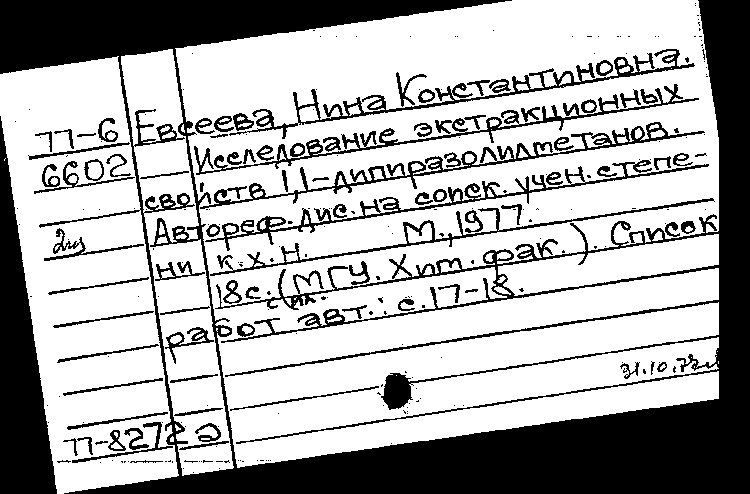 77-6 Евсеева, Нина Константиновна.
6602 Исследование экстракционных
свойств 1,1-дипиразолилметанов.
Автореф. дис. на соиск. учен. степе-
ни к.х.н. М., 1977.
18с. (МГУ. Хим. фак.). Список
с ил.
работ авт.: с.17-18.
77-8272а